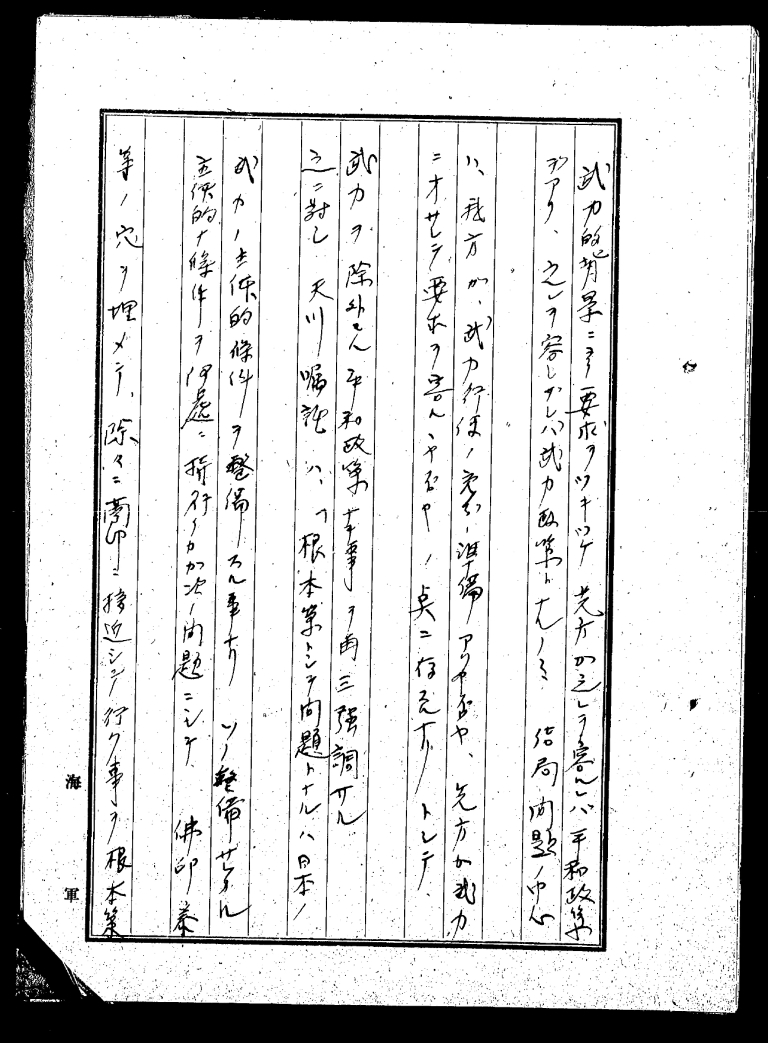 武力的背景ニヨリ要求ヲツキツケ 先方カ之レヲ容ルレバ平和政策
デアリ、之レヲ容レナケレバ武力政策トナルノミ 結局問題ノ中心
ハ、我方ガ、武力行使ノ充分ノ準備アリヤ否ヤ、先方ガ武力
ニオサレテ要求ヲ容ルヽヤ否ヤノ点ニ存スルナリトシテ、
武力ヲ除外セル平和政策ナキ事ヲ再三強調サル
之ニ対シ 天川嘱託ハ、「根本策トシテ問題トナルハ日本ノ
武力ノ主体的條件ヲ整備スル事ナリ ソノ整備サレタル
主体的ナ條件ヲ何處ニ指行クカガ次ノ問題ニシテ 佛印泰
等ノ穴ヲ埋メテ、除々ニ蘭印ニ接近シテ行ク事ヲ根本策
海軍